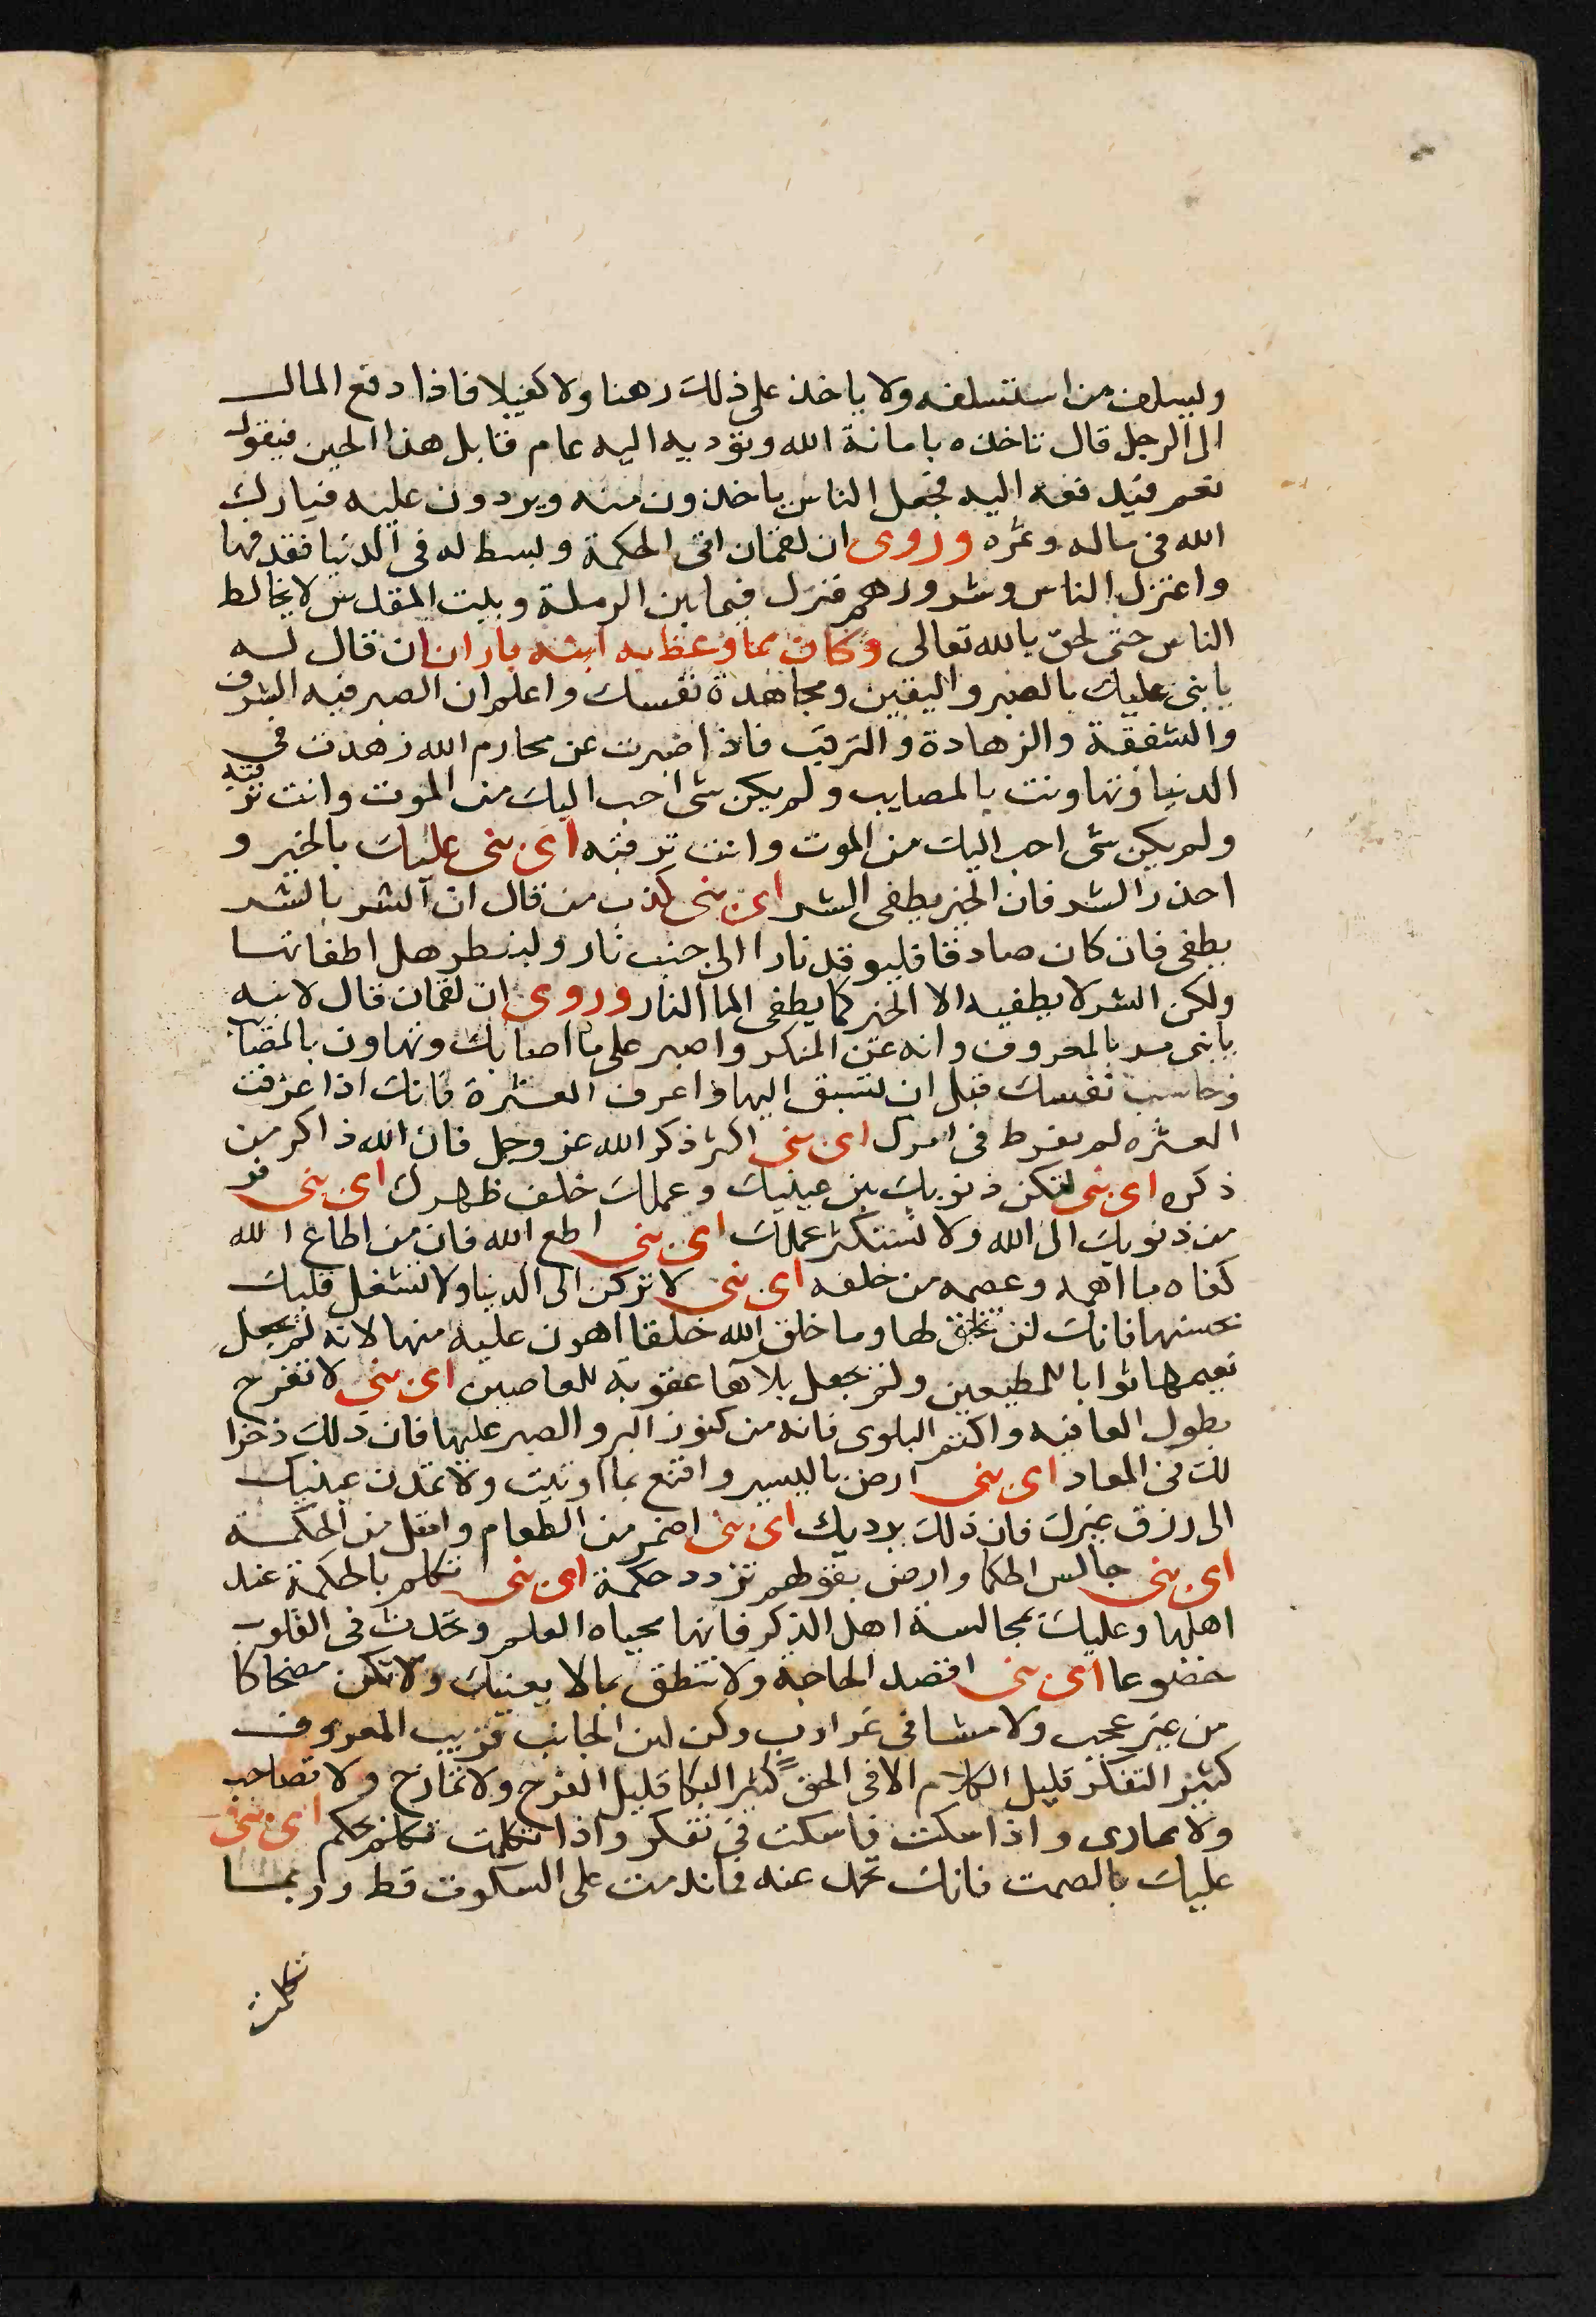 وليسلف من استسلفه ولا ياخذ على ذلك رهنا ولا كفيلا فاذا دفع المال
الى الرجل قال تاخذه بامانة الله وتؤديه اليه عام قابل هذا الحين فيقول
نعم فيدفعه اليه فجعل الناس ياخذون منه ويردون عليه فبارك
الله فى ماله وثمره وروى ان لقمان اتى الحكمة وبسط له فى الدنيا فقد فها
واعتزل الناس وشرورهم فنزل فيما بين الرملة وبيت المقدس لا يخالط
الناس حتى لحق بالله تعالى وكان مما وعظ به ابنه باران ان قال له
يا بنى عليك بالصبر واليقين ومجاهدة نفسك واعلم ان الصبر فيه الشرف
والشفقة والزهادة والترقب فاذا صبرت عن محارم الله زهدت فى
الدنيا وتهاونت بالمصايب ولم يكن شى احب اليك من الموت وانت ترقبه
ولم يكن شى احب اليك من الموت وانت ترقبه اى بنى عليك بالخير و
احذر الشر فان الخير يطفى الشر اى بنى كذب من قال ان الشر بالشر
يطفى فان كان صادقا فليوقد نارا الى جنب نار ولينظر هل اطفاتها
ولكن الشر لا يطفيه الا الخير كما يطفى الما النار وروى ان لقمان قال لابنه
يا بنى مر بالمعروف وانه عن المنكر واصبر على ما اصابك وتهاون بالمصا
وحاسب نفسك قبل ان تسبق اليها واعرف العشرة فانك اذا عرفت
العشره لم تفرط فى امرك اى بنى اكثر ذكر الله عز وجل فان الله ذاكر من
ذكره اى بنى لتكن ذنوبك بين عينيك وعملك خلف ظهرك اى بنى فر
من ذنوبك الى الله ولا تستكثر عملك اى بنى اطع الله فان من اطاع الله
كفاه ما اهمه وعصمه من خلقه اى بنى لا تركن الى الدنيا ولا تشغل قلبك
بحسنها فانك لن تخلق لها وما خلق الله خلقا اهون عليه منها لانه لم يجعل
نعيمها ثوابا للمطيعين ولم يجعل بلاها عقوبة للعاصين اى بنى لا تفرح
بطول العافيه واكتم البلوى فانه من كنوز البر والصبر عليها فان ذلك ذخرا
لك فى المعاد اى بنى ارض باليسير واقنع بما اوتيت ولا تمدن عينيك
الى رزق غيرك فان ذلك يرديك اى بنى اضمر من الطعام وامتل من الحكمة
اى بنى جالس الحكما وارض بقولهم تزدد حكمة اى بنى تكلم بالحكمة عند
اهلها وعليك بمجالسة اهل الذكر فانها محياه العلم وتحدث فى القلوب
خضوعا اى بنى اقصد الحاجة ولا تنطق بما لا يعنيك ولا تكن مضحاكا
من غير عجب ولا مشا فى غير ادب وكن لين الجانب قريب المعروف
كثير التفكر قليل الكلام الا فى الحق كثير البكا قليل الفرح ولا تمازح ولا تصاحب
ولا تمارى واذا سكت فاسكت فى تفكر واذا تكلمت تكلم بحكم اى بنى
عليك بالصمت فانك تحمد عنه فما ندمت على السكوت قط وربما
تكلمت